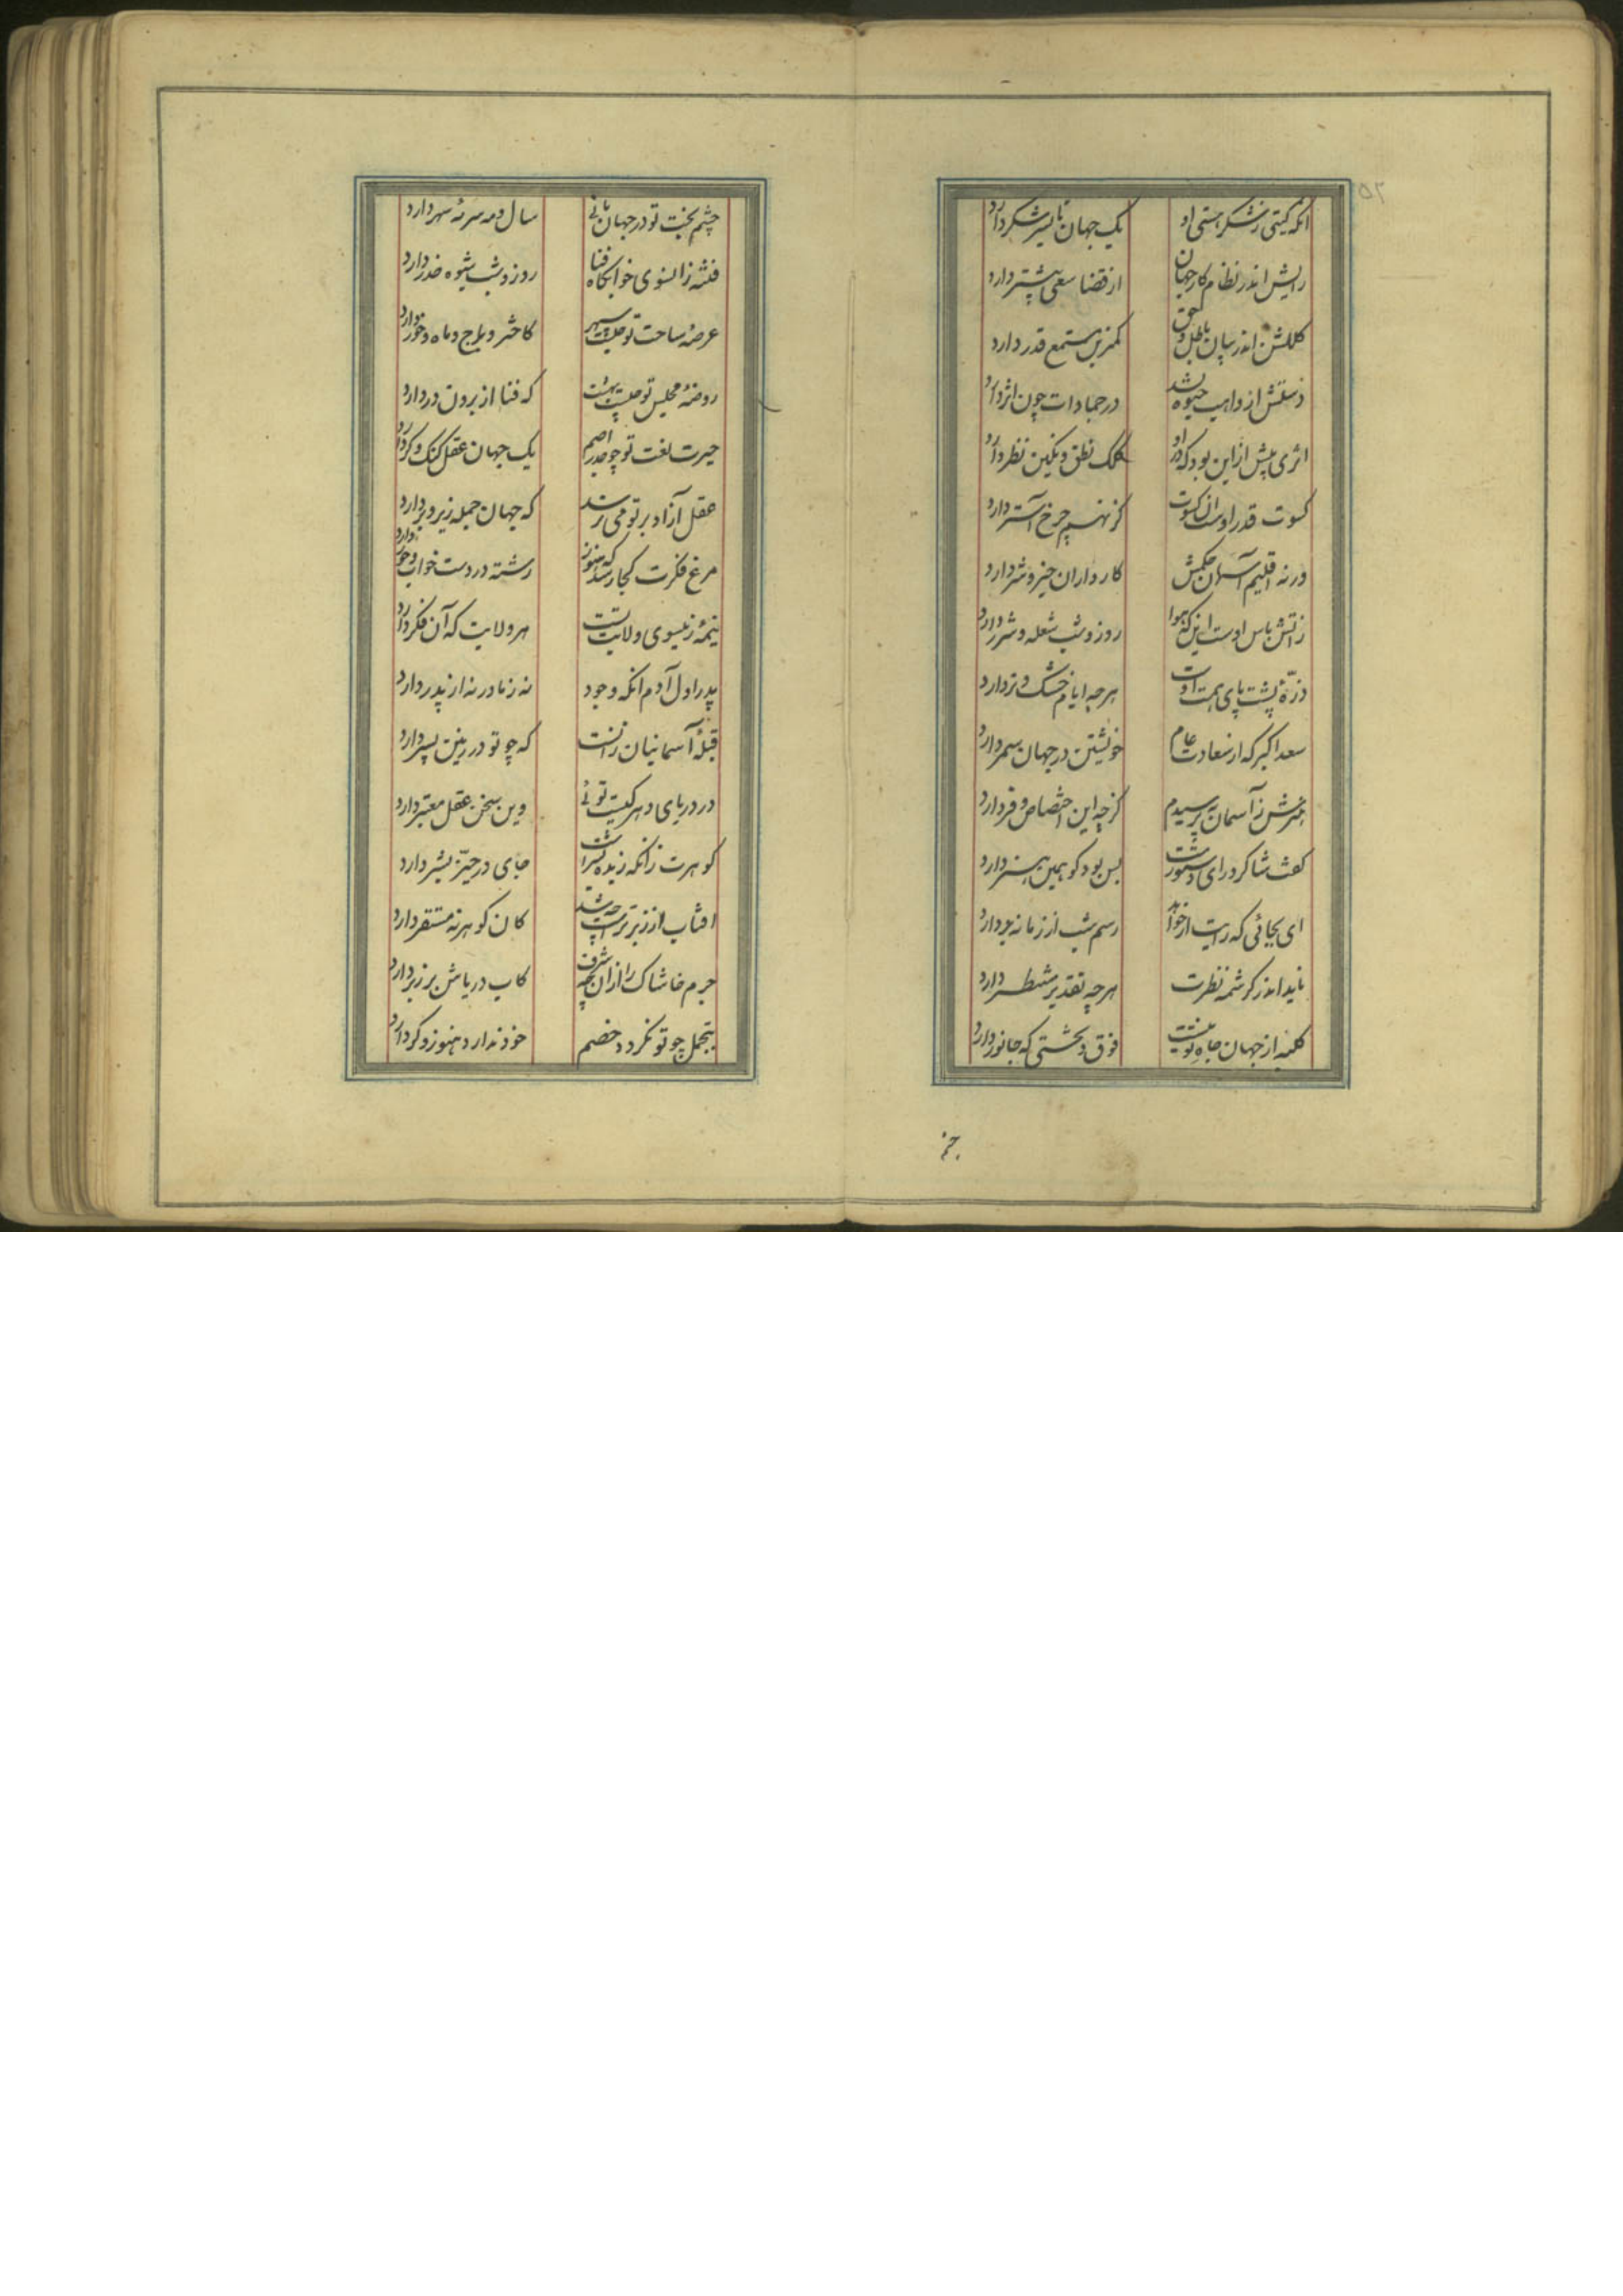 آنکه گیتی ز شکر هستی او یک جهان تا بسر شکر دارد
رایش اندر نظام کار جهان از قضا سعی بیشتر دارد
کلکش اندر بیان باطل و حق کمترین مستمع قدر دارد
دستش از واهب حیوه نشد در جمادات چون اثر دارد
اثری بیش ازین بود که درو کلک نطق و نگین نظر دارد
کسوت قدر اوست آن کسوت کز نهم چرخ آستر دارد
در نه اقلیم آسمان حکمش کارداران خیر و شر دارد
ز آتش باس اوست اینکه هوا روز و شب شعله و شرر دارد
ذرّهٔ پشت پای همت اوست هرچه ایام خشک و تر دارد
سعد اکبر که از سعادت عام خویشتن در جهان سمر دارد
هنرش ز آسمان بپرسیدم گرچه این اختصاص و فر دارد
گفت شاگرد رای دستورست بس بود گو همین هنر دارد
ای بجائی که رایت ار خواهد رسم شب از زمانه بر دارد
ناید اندر کرشمه نظرت هرچه تقدیر مشتطر دارد
کلبه از جهان جاه تو نیست فوق و تحتی که جانور دارد
چشم بخت تو در جهان بانی سال و مه سرمه سهر دارد
فتنه زانسوی خوابگاه فنا روز و شب شیوه حذر دارد
عرصهٔ ساحت تو چیست سپهر کاختر و برج و ماه و خور دارد
روضهٔ مجلس تو چیست بهشت که فنا از برون در دارد
حیرت لغت تو چو جذر اصم یک جهان عقل گنگ و کر دارد
عقل آزاد بر تو می نرسد که جهان جمله زیر و بر دارد
مرغ فکرت کجا رسد که هنوز رشته در دست خواب و خور دارد
نیمهٔ زینسوی ولایت تست هر ولایت که آن فکر دارد
پدر اول آدم آنکه وجود نه ز مادر نه از پدر دارد
قبلهٔ آسمانیان زانست که چو تو در زمین پسر دارد
در دریای دهر کیست توئی وین سخن عقل معتبر دارد
گوهرت زانکه زبده بشر است جای در حیّز بشر دارد
آفتاب از زبر ترست چه شد کان گوهر نه مستقر دارد
جرم خاشاک را از آن چه شرف کاب دریاش بر زبر دارد
بتجمل چو تو نگردد خصم خود ندارد هنوز و گر دارد